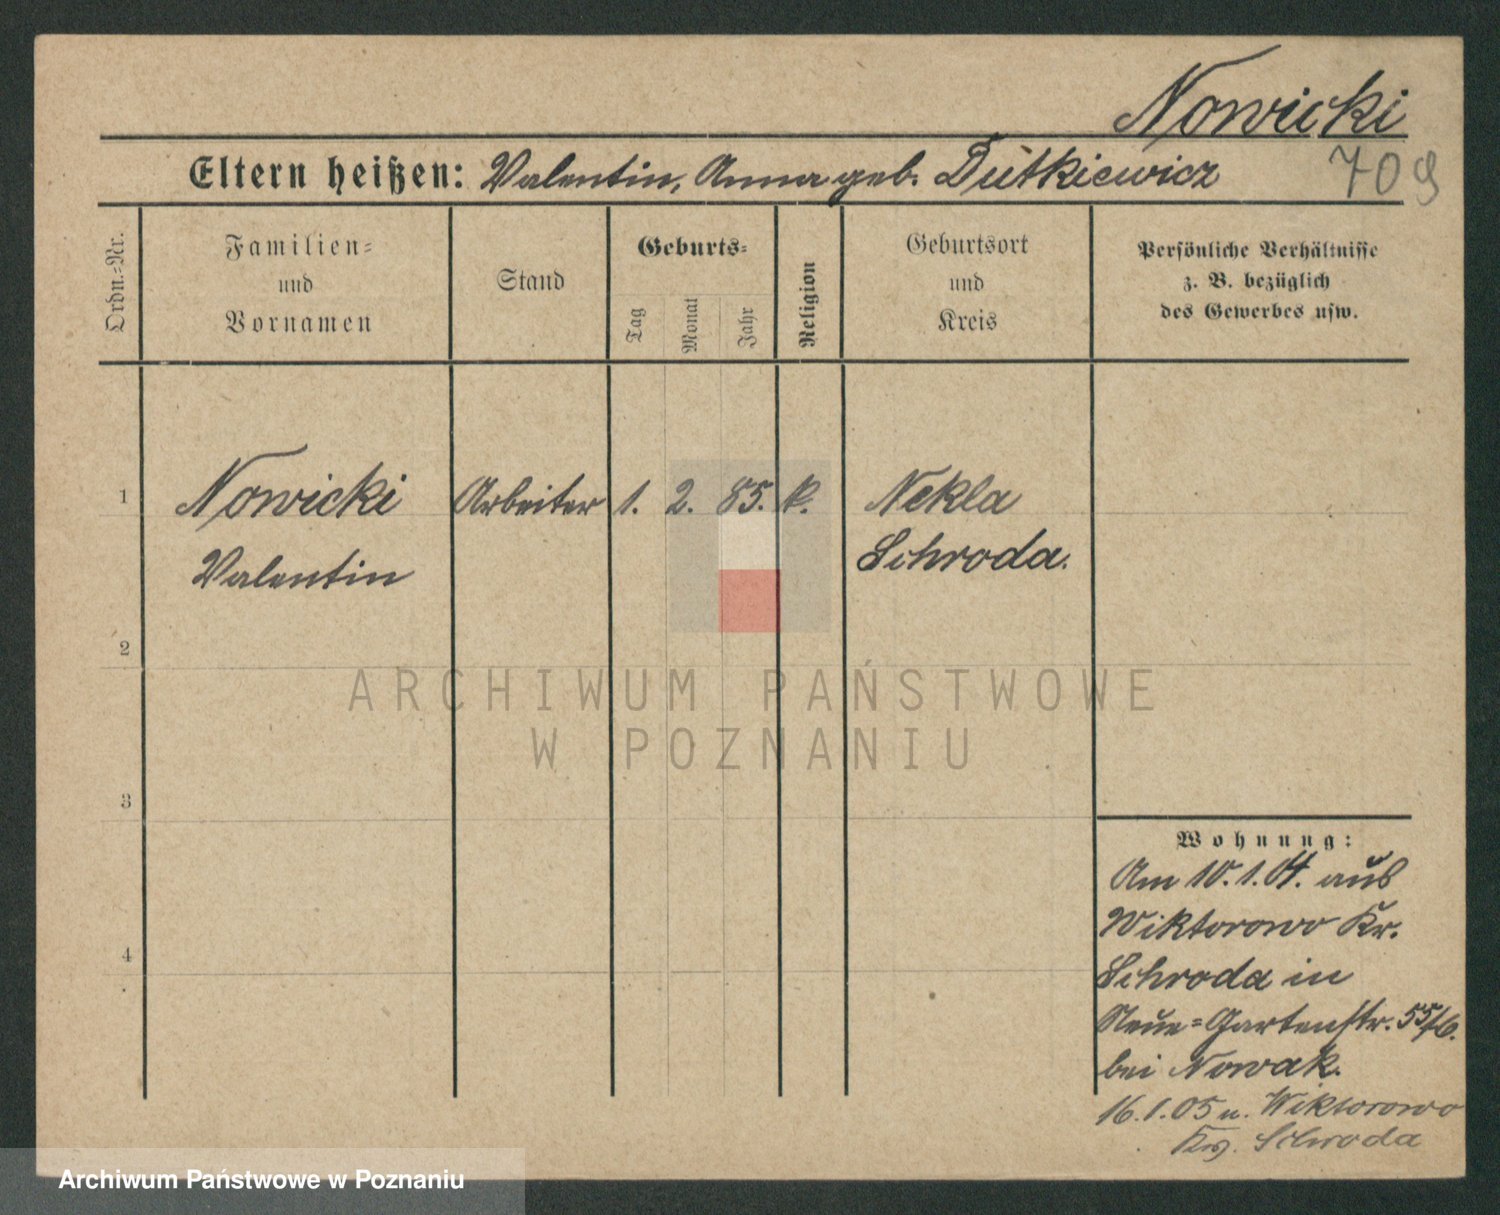 Nowicki
Eltern heißen: Valentin, Anna geb. Dutkiewicz
709
Ordn.=Nr.
Familien=
und
Vornamen
Stand
Geburts=
Tag
Monat
Jahr
Religion
Geburtsort
und
Kreis
Persönliche Verhältnisse
z. B. bezüglich
des Gewerbes usw.
1 Nowicki Arbeiter 1. 2. 85. k. Nekla
Valentin Schroda.
2
3
4
ARCHIWUM PAŃSTWOWE
W POZNANIU
Wohnung:
Am 10.1.04. aus
Wiktorowo Kr.
Schroda in
Neue=Gartenstr. 55/6.
bei Nowak.
16.1.05 n. Wiktorowo
Krs. Schroda
Archiwum Państwowe w Poznaniu